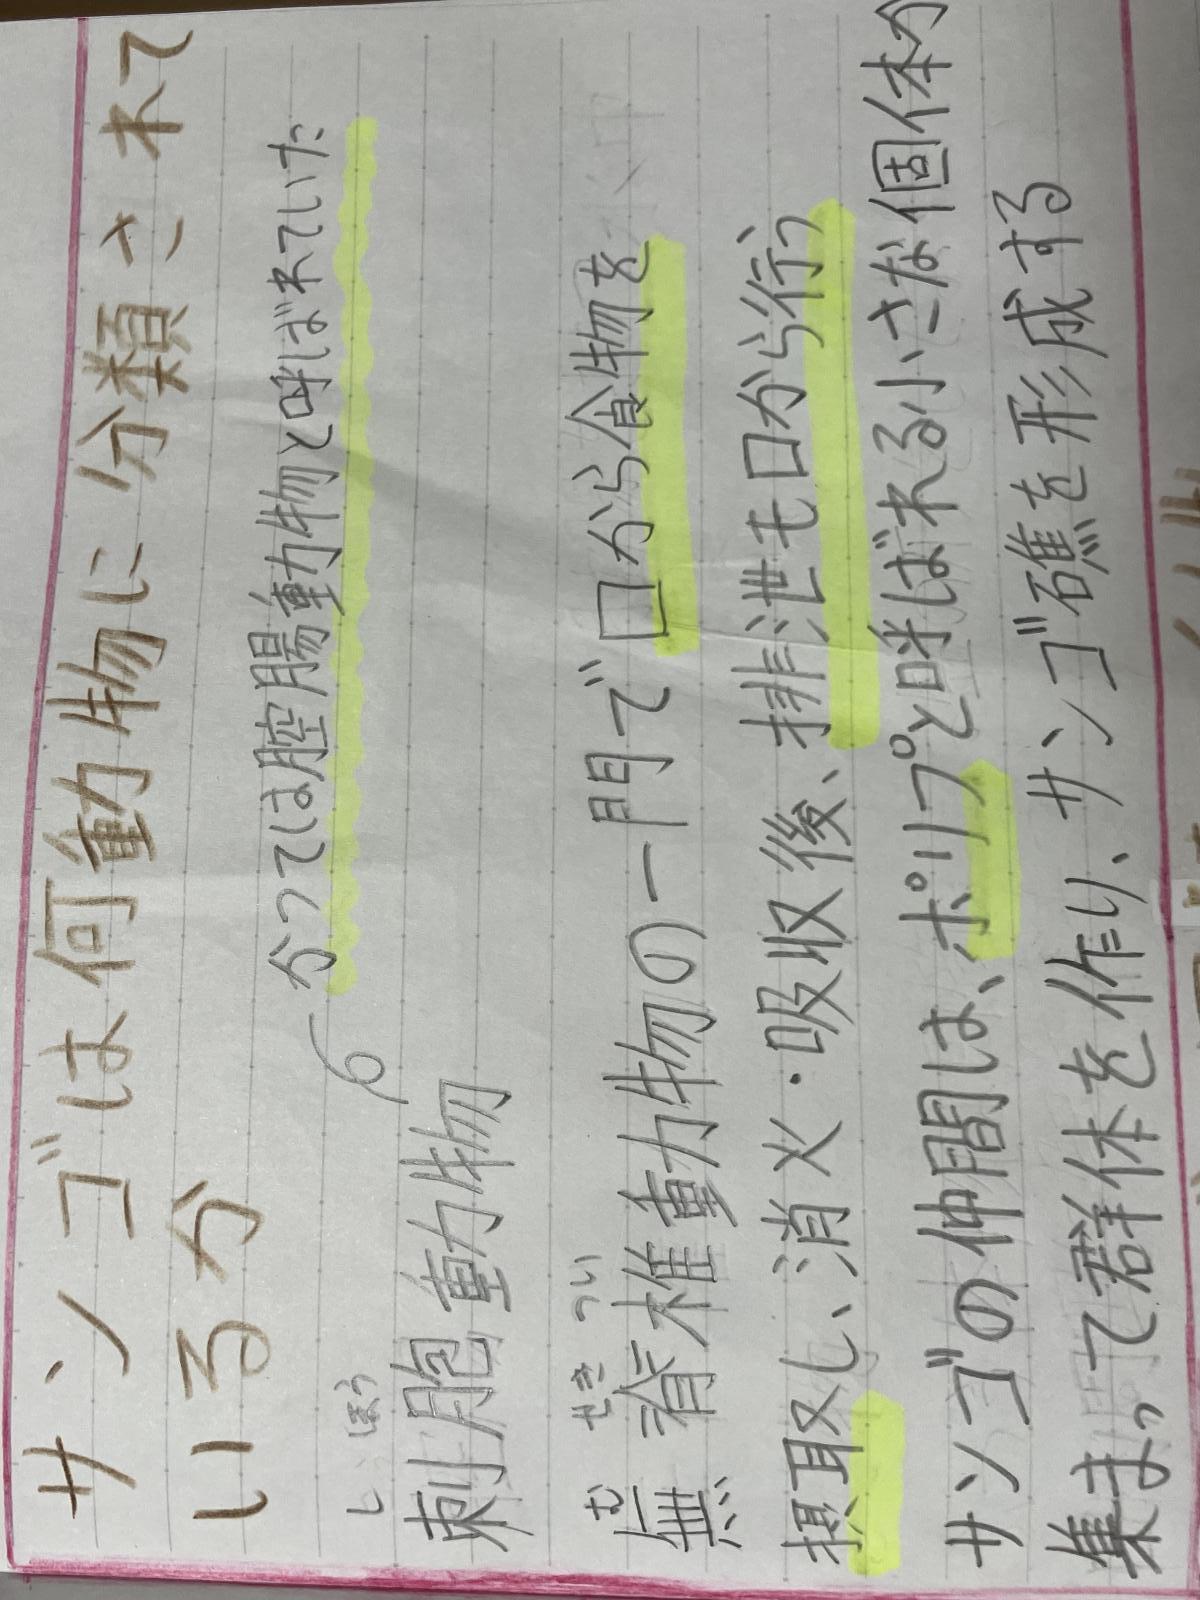 サンゴは何動物に分類されて
いるか
かつては腔腸動物と呼ばれていた
しほう
刺胞動物
むせきつい
無脊椎動物の一門で口から食物を
摂取し、消火・吸収後、排泄も口から行う、
サンゴの仲間は、ポリプと呼ばれる小さな個体が
集まって群体を作り、サンゴ礁を形成する